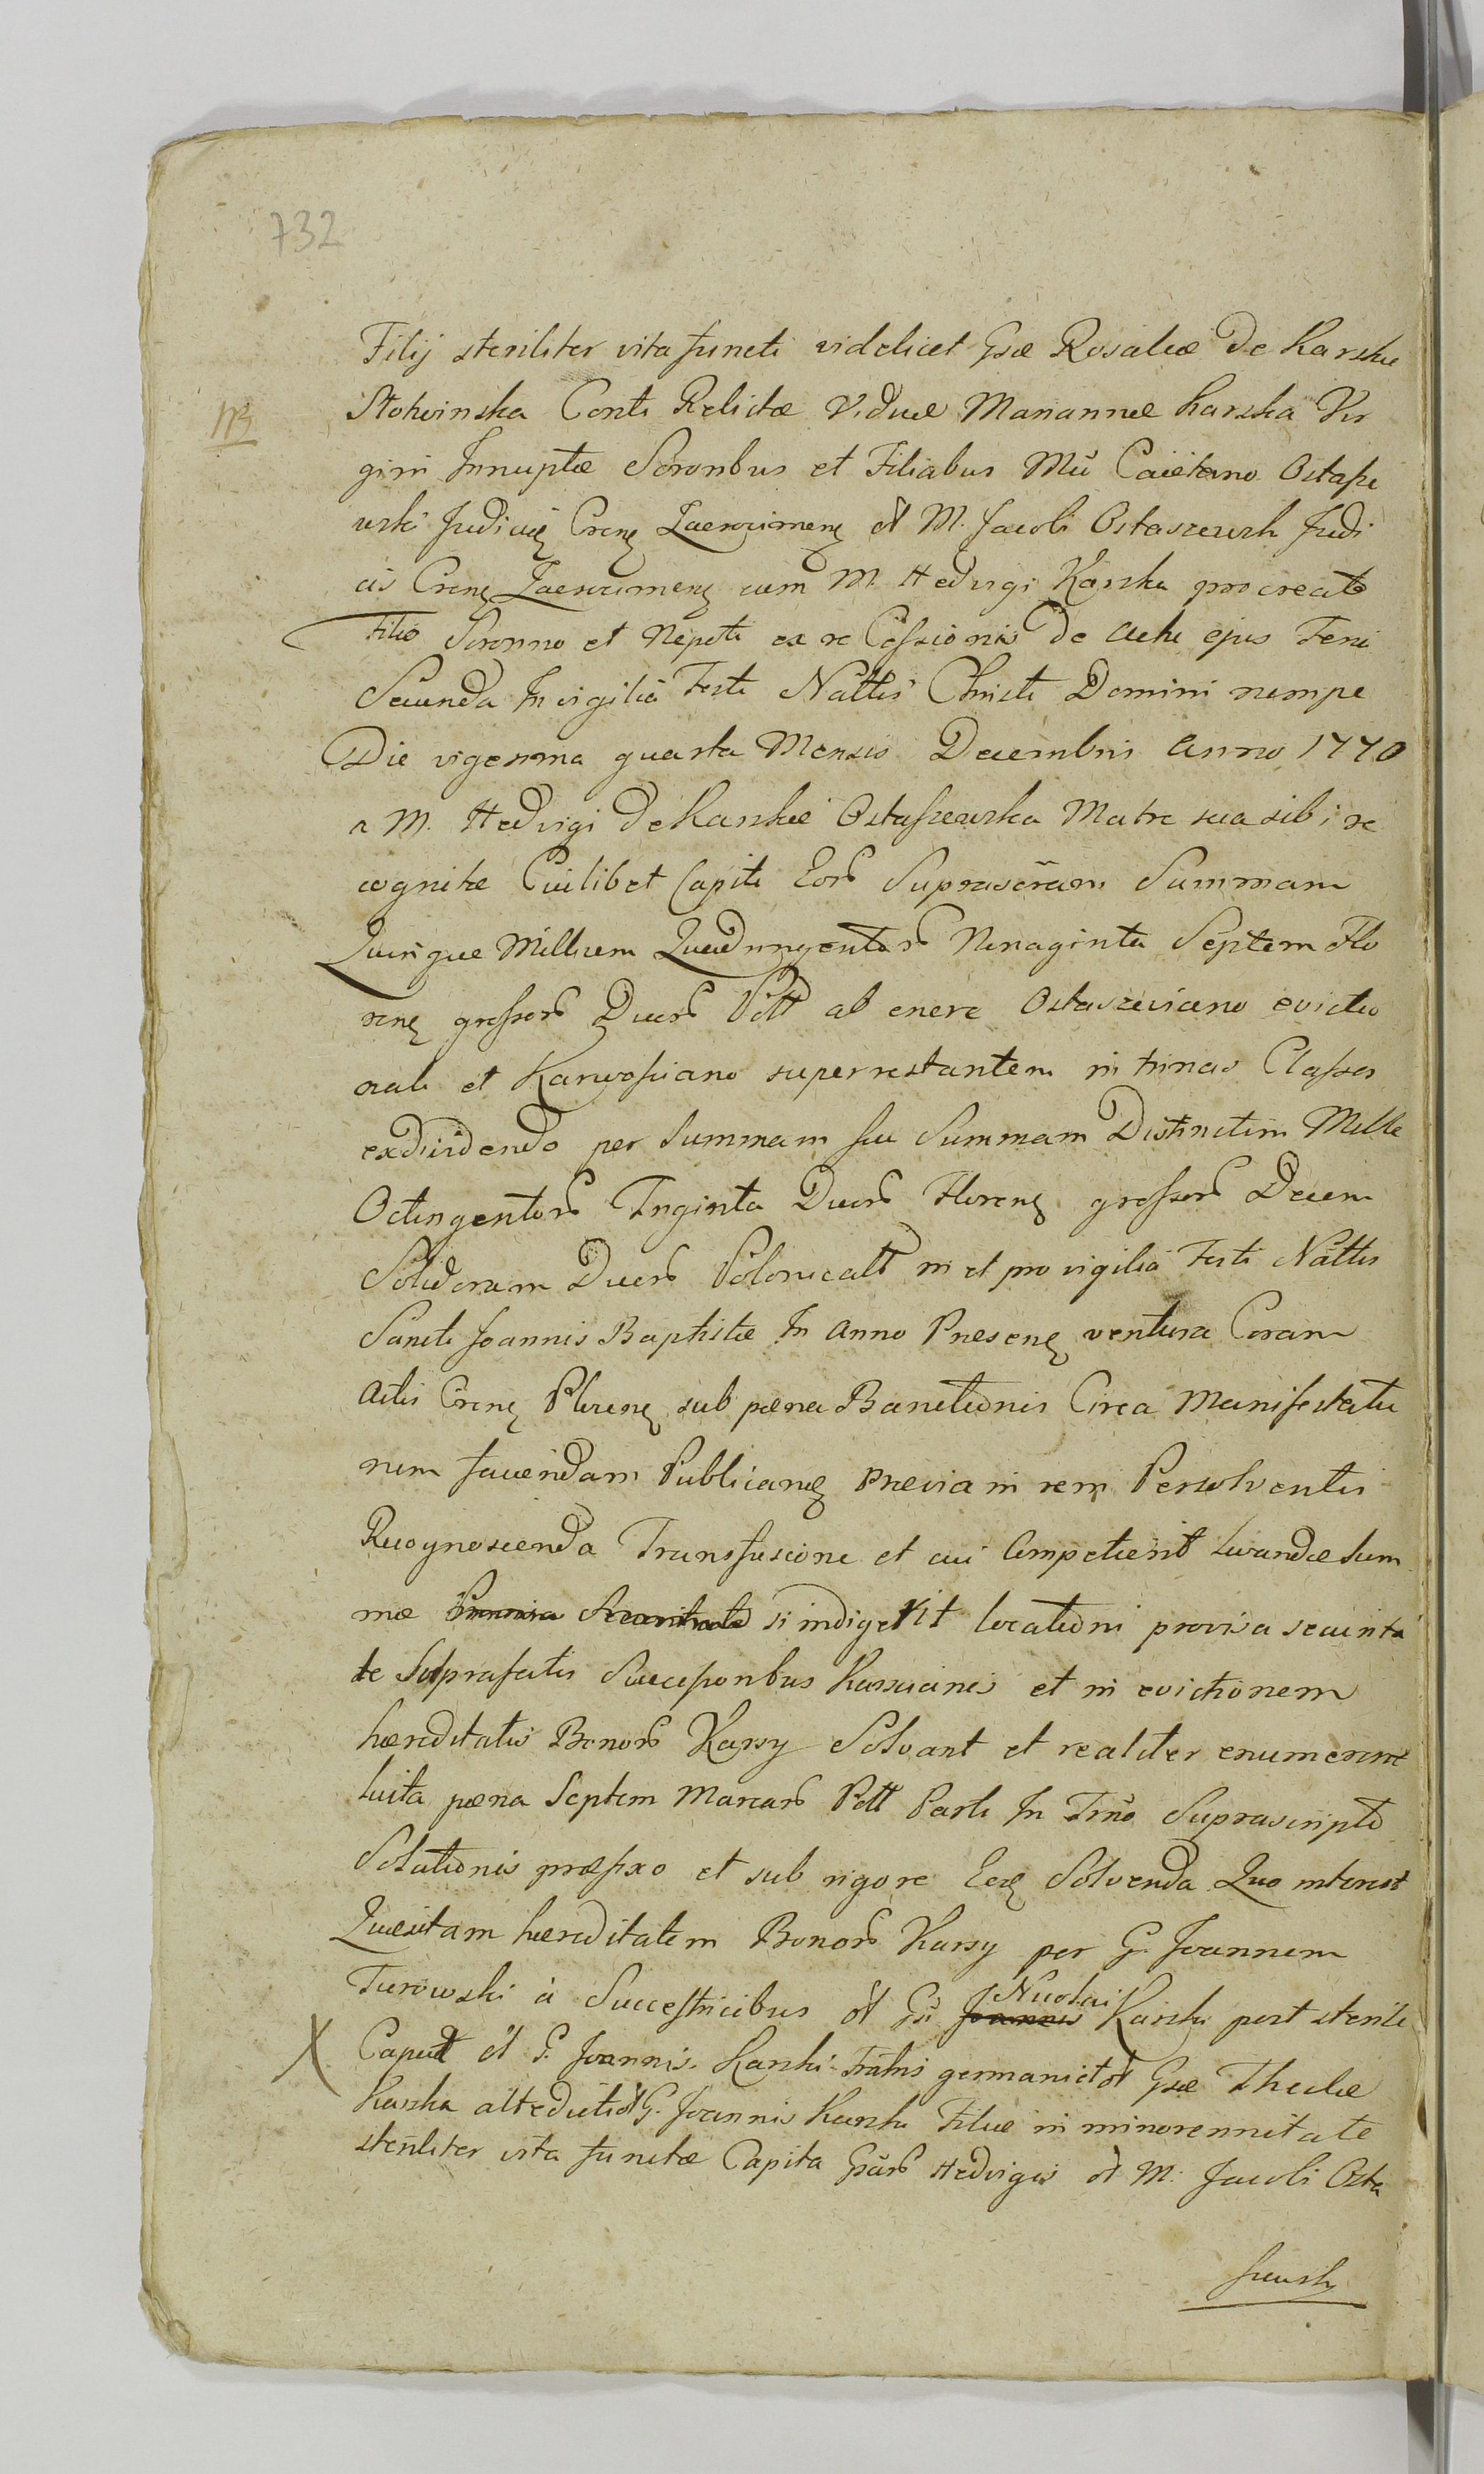 732
Filij steriliter vita functi videlicet Gsæ Rosaliæ De Karskie
Stokwinska Conti Relictæ Viduæ Mariannæ Karska Vir
NB
gini Innuptæ Sororibus et Filiabus Mci Caietano Ostasze
wski Judicis Crens Zaewcimens ol M. Jacobi Ostaszewski Judi
cis Crens Zaewcimens cum M. Hedvigi Karska procreato
Filio Soronno et Nepoti ex re Cessionis De Actu ejus Feria
Secunda In vigilia Festi Nattis Christi Domini nempe
Die vigesima quarta Mensis Decembris Anno 1770
a M. Hedvigi de Karskie Ostaszewska Matre sua sibi re
cognitæ Cuilibet Capiti Eor Suprascram Summam
Quinque Millium Quadringentor Nonaginta Septem Flo
rens grossor Duor Poll ab onere Ostasceviano evictio
nali et Karwosiano superrestantem in trinas Classes
exdividendo per Summam seu Summam Distinctim Mille
Octingentor Triginta Duor Florens grossor Decem
Solidorum Duor Polonicall in et pro vigilia Festi Nattis
Sancti Joannis Baptistæ In Anno Præsens ventura Coram
Actis Crens Plicens sub pæna Bannitionis Circa Manifestatio
nem faciendam Publicans prævia in rem Persolventis
Recognoscenda Transfusione et cui Competierit Levandæ Sum
mæ si indigerit locationi provisa securita
te Suprafatis Successoribus Karscianis et in evictionem
hæreditatis Bonor Karsy Solvant et realiter enumerent
luita pæna Septem Marcar Poll Parti In Trno Suprascripto
Solutionis præfixo et sub rigore Eod Solvenda Quo interest
Quæsitam hæreditatem Bonor Karsy per G. Joannem
Turowski à Successricibus ol Gsi Joannis Nicolai Karski post sterile
X Caput ol G. Joannis Karski Fratris germani et ol Gsæ Theclæ
Karska altedicti ol G. Joannis Karski Filiæ in minorennitate
steriliter vita functæ Capita Gsar Hedvigis ol M. Jacobi Osta
szewski